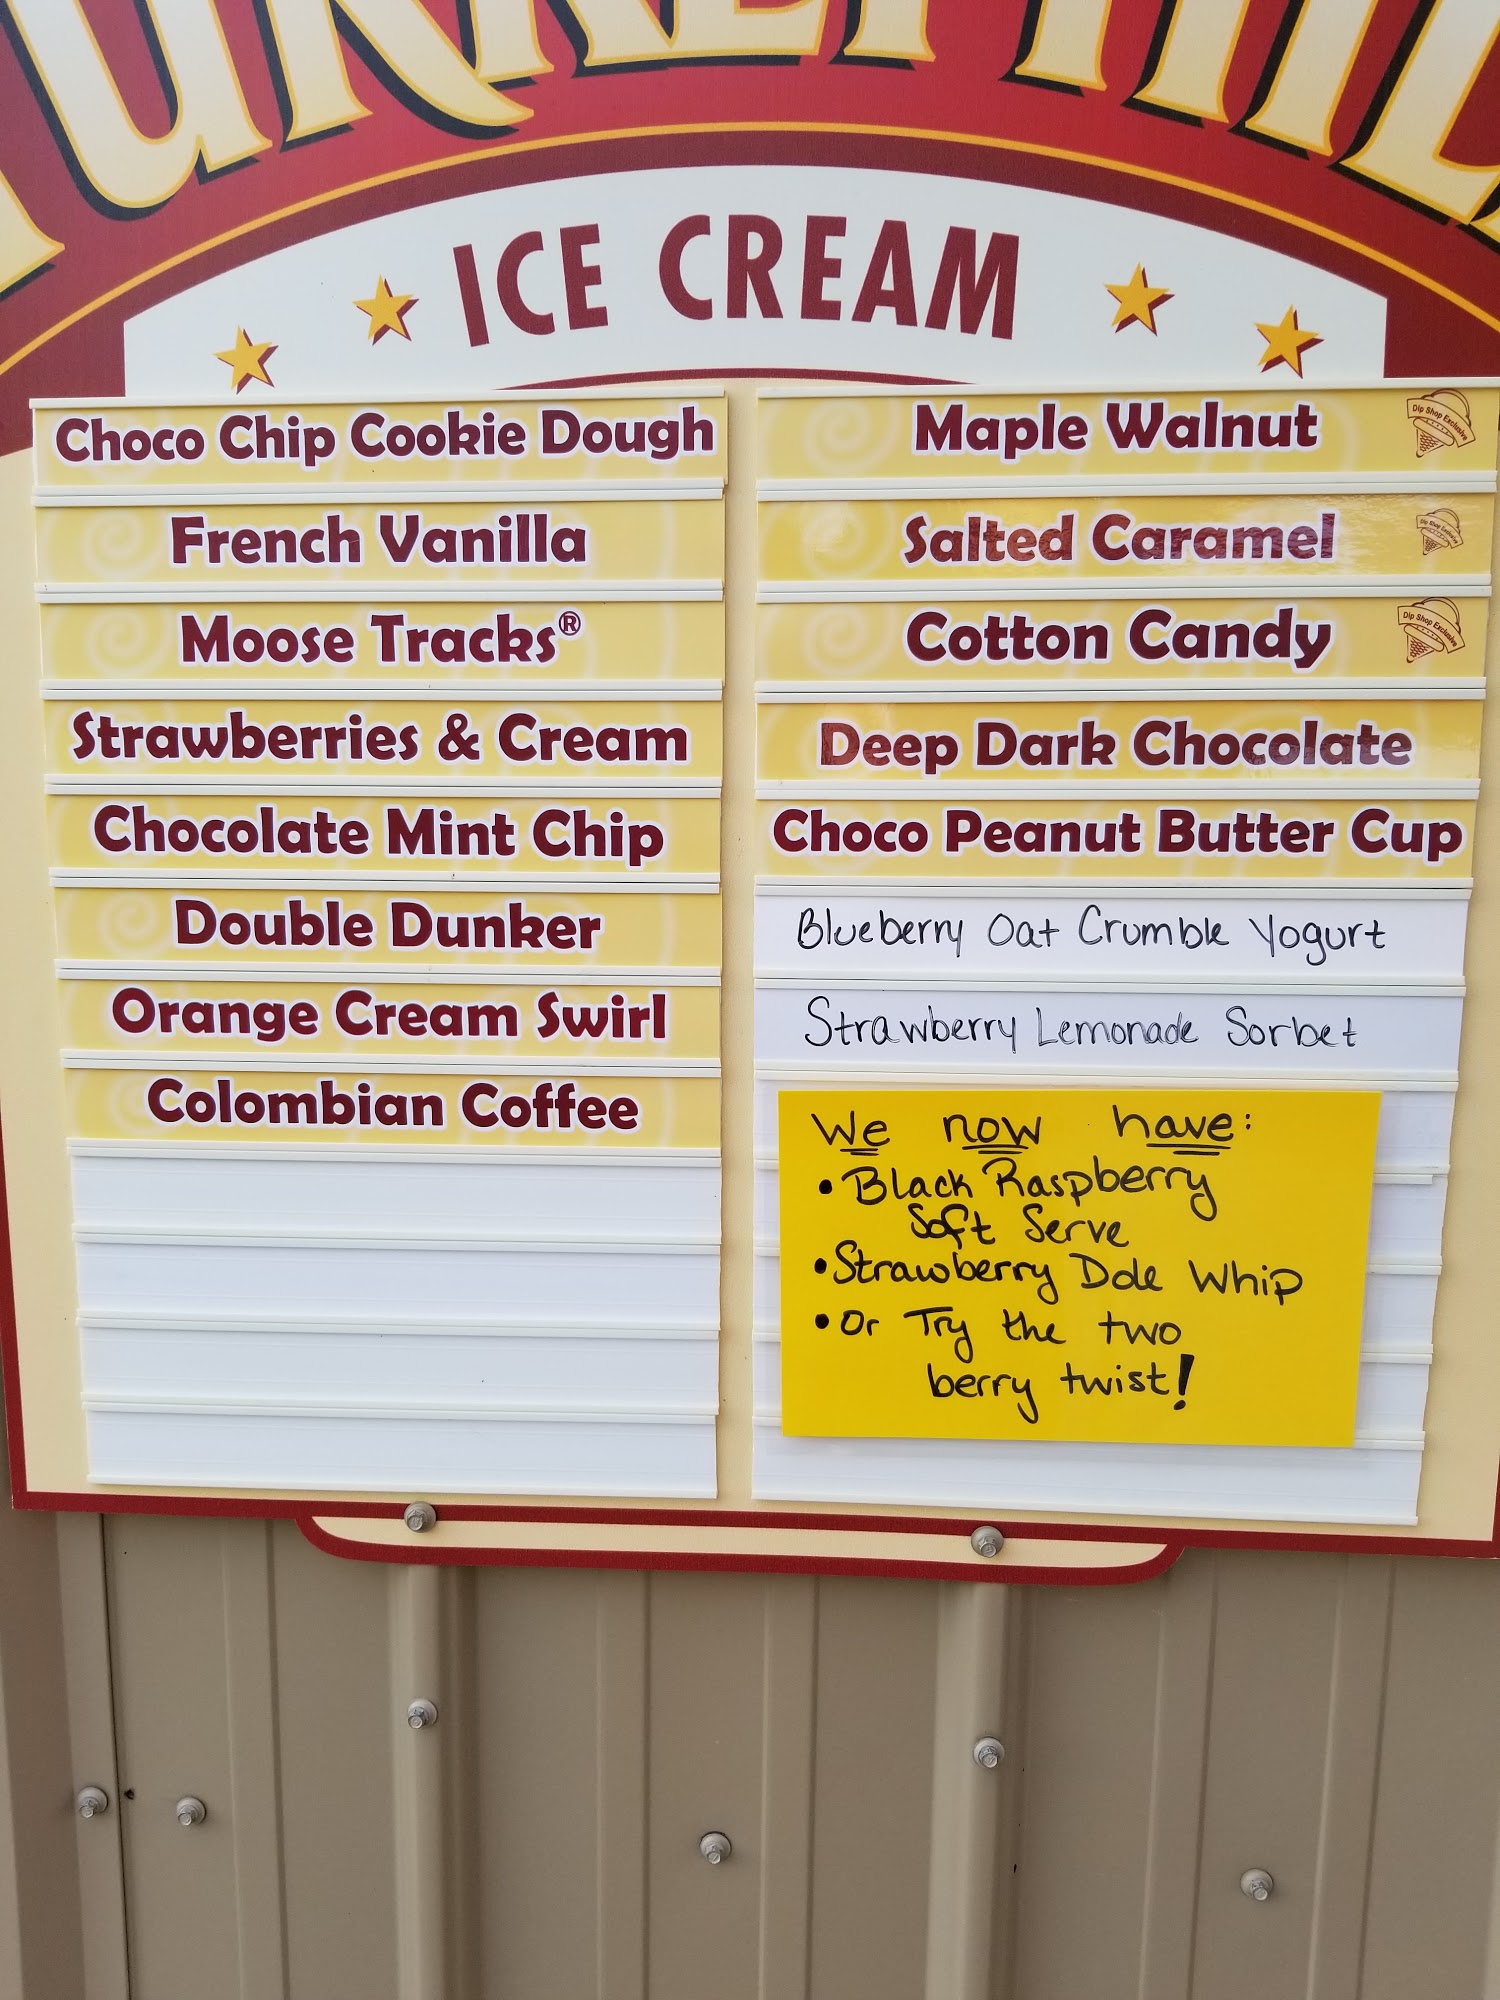 ICE CREAM
Choco Chip Cookie Dough
French Vanilla
Moose Tracks®
Strawberries & Cream
Chocolate Mint Chip
Double Dunker
Orange Cream Swirl
Colombian Coffee
Maple Walnut
Dip Shop Exclusive
Salted Caramel
Dip Shop Exclusive
Cotton Candy
Dip Shop Exclusive
Deep Dark Chocolate
Choco Peanut Butter Cup
Blueberry Oat Crumble Yogurt
Strawberry Lemonade Sorbet
We now have:
• Black Raspberry
Soft Serve
• Strawberry Dole Whip
• Or Try the two
berry twist!